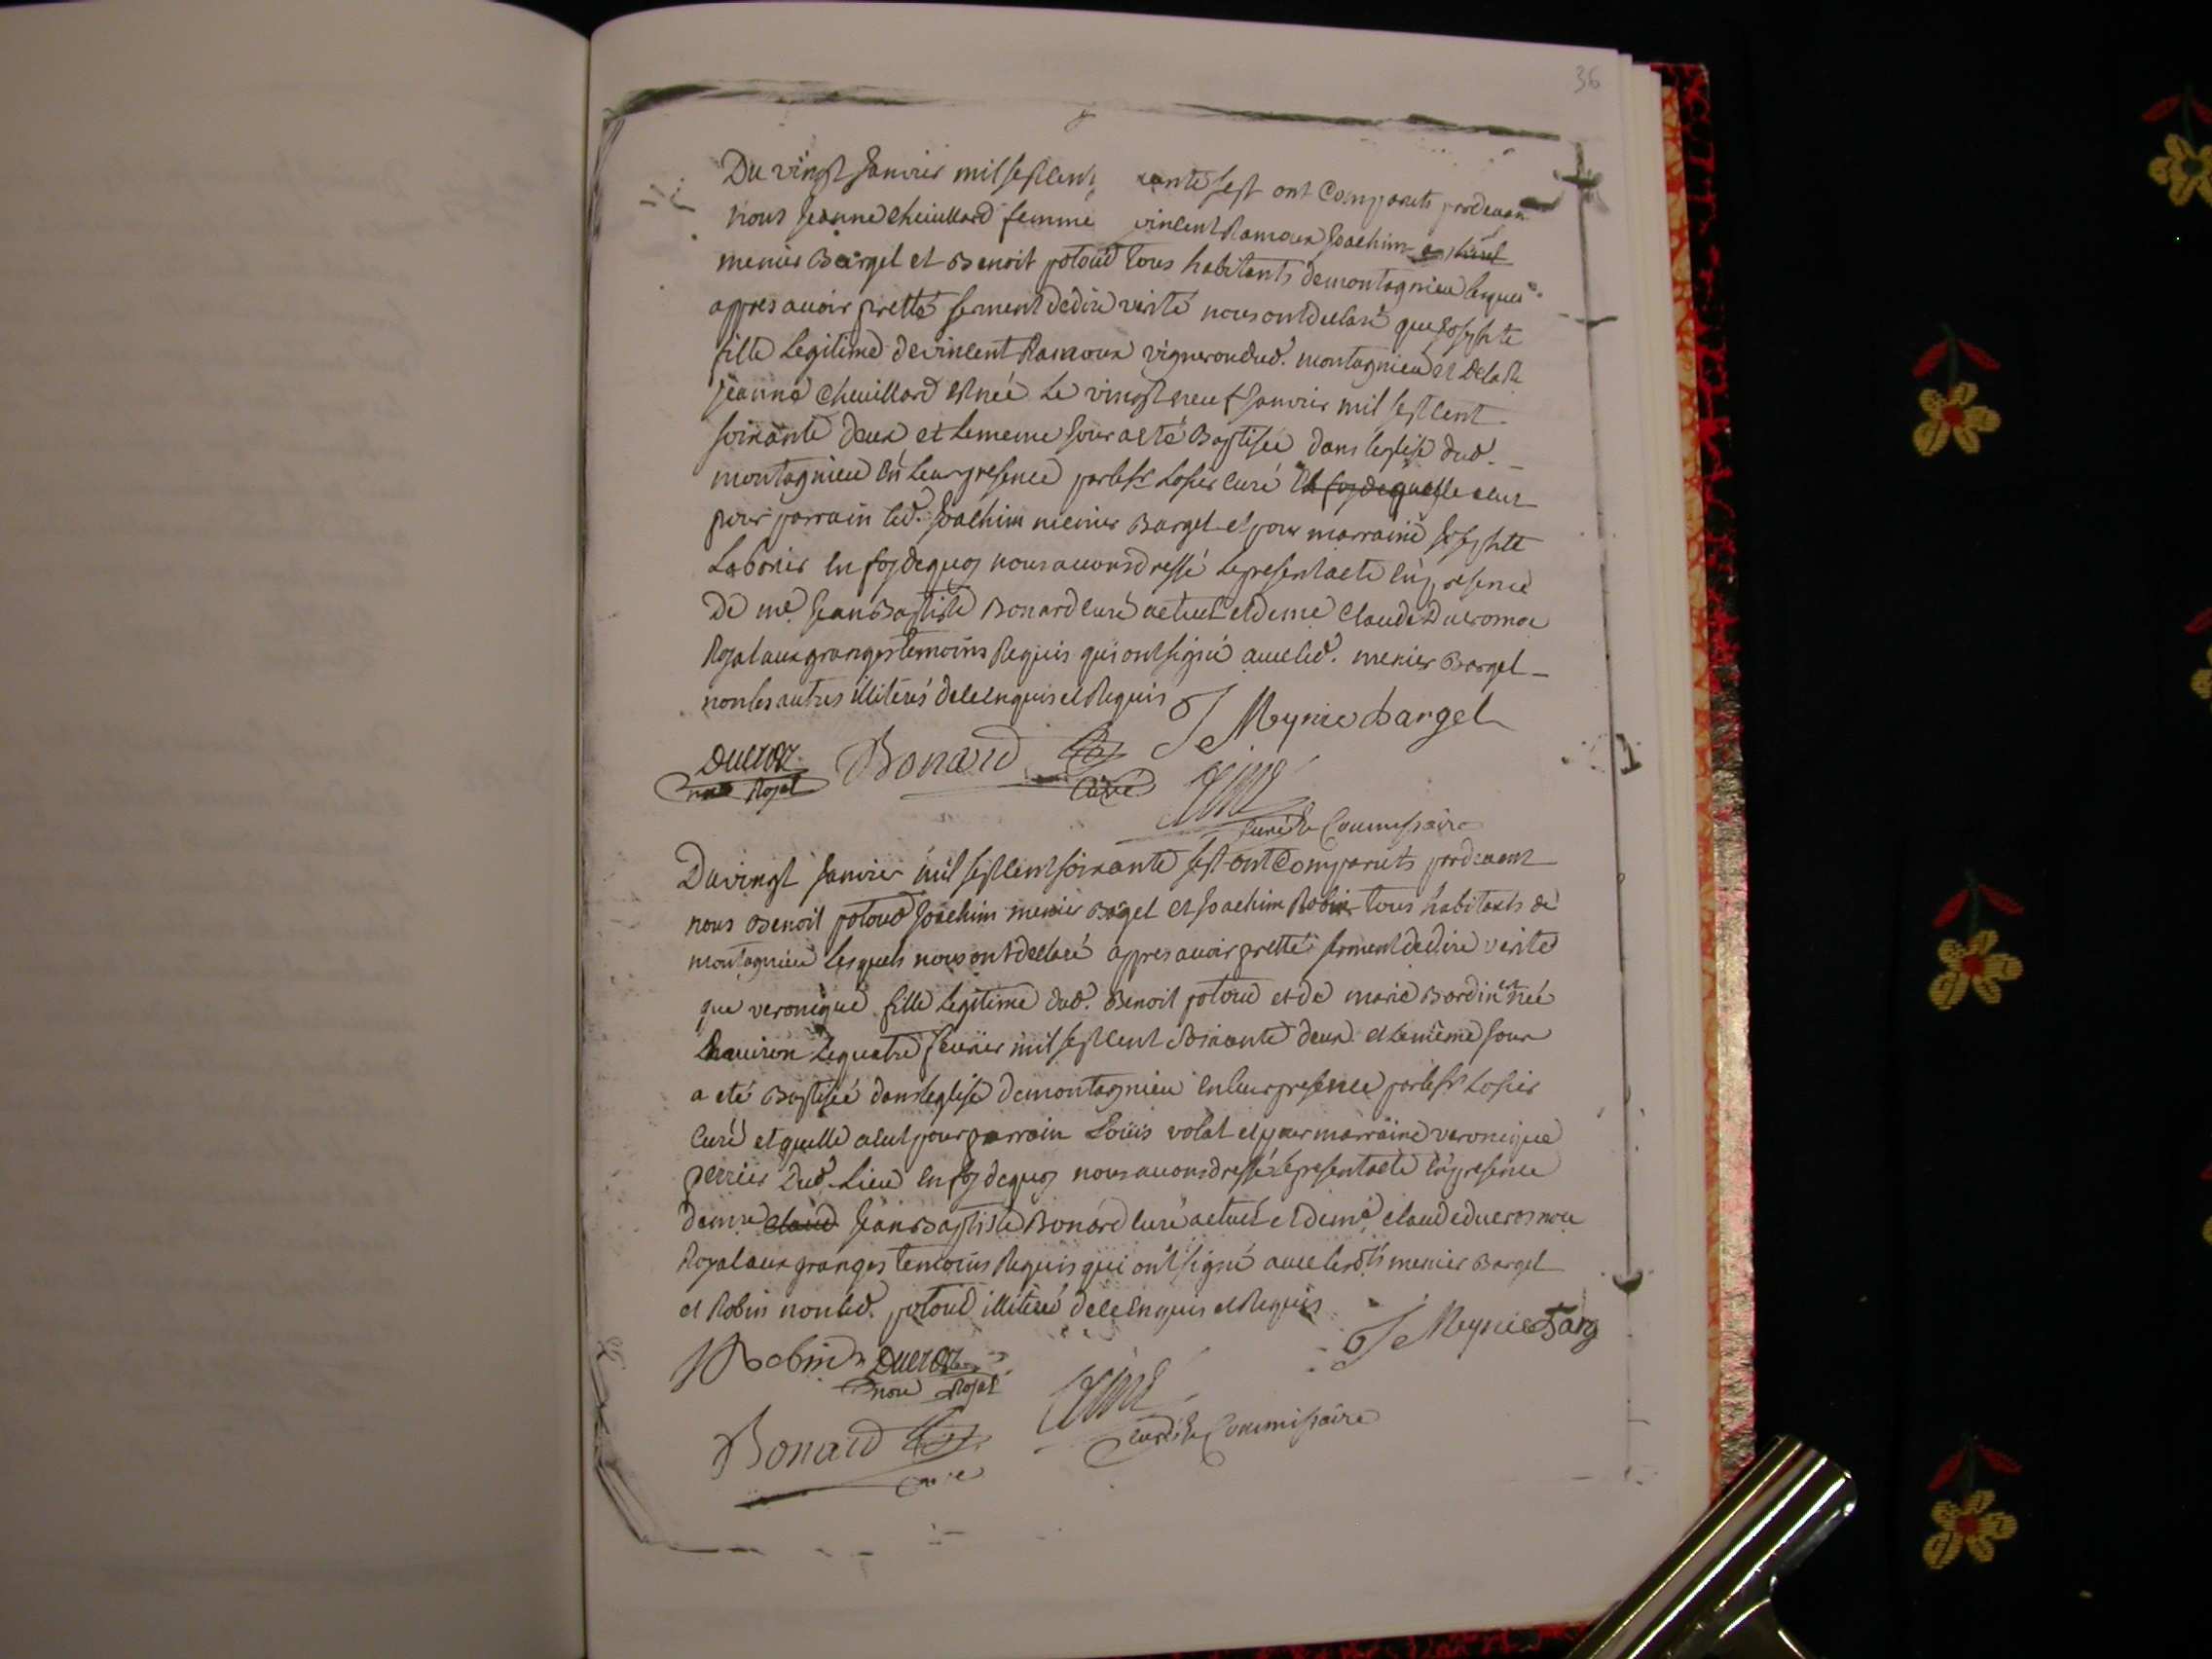 36
Du vingt Janvier mil sept cent xante sept ont Comparuts pardevan
nous Jeanne Cheuillard femme vincent Ramoux Joachim
menier Bargel et Benoit potoud tous habitants de montagnieu lesquels
appres auoir pretté serment de dire verité nous ont declaré que Josephte
fille Legitime de vincent Ramoux vigneron dud. montagnieu et de lad
Jeanne Cheuillard est née Le vingt neuf Janvier mil sept cent
soixante deux et le meme Jour a eté Baptisée dans leglise dud.
montagnieu en Leur presence par le sr Losier curé elle a eut
pour parrain led. Joachim menier Bargel et pour marraine Josephte
Laborier en foy de quoy nous auons dressé le present acte en presence
de me Jean Baptiste Bonard curé actuel et de me Claude Ducros noe
Royal aux granges temoins Requis qui ont signé auec led. menier Bargel
non les autres illiterés de ce enquis et Requis J Meynie Bargel
Ducros Bonard
noe Royal Curé
Curé & Commissaire
Du vingt Janvier mil sept cent soixante sept ont Comparuts pardeuant
nous Benoit potoud Joachim menier Bargel et Joachim Robin tous habitants de
montagnieu Lesquels nous ont declaré appres auoir pretté serment de dire verité
que veronique fille Legitime dud. Benoit potoud et de marie Bordin est née
Enuiron le quatre feurier mil sept cent Soixante deux et le même Jour
a eté Baptisée dans leglise de montagnieu en leur presence par le sr Losier
Curé et quelle a eut pour parrain Louis volat et pour marraine veronique
perrier dud. Lieu en foy de quoy nous auons dressé le present acte en presence
de me Claud Jean Baptiste Bonard curé actuel et de me claude ducros noe
Royal aux granges temoins Requis qui ont signé auec lesdts menier Bargel
et Robin non led. potoud illiteré de ce enquis et Requis J Meynie Barg
J Robin Ducros
noe Royal
Bonard Curé & Commissaire
Curé